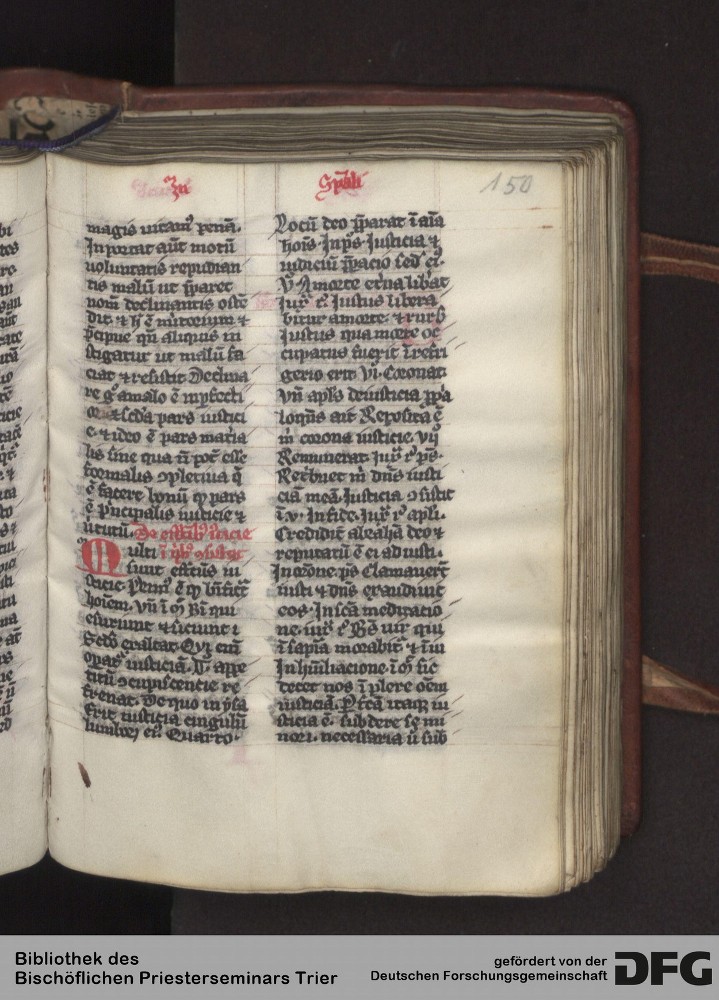 Spũali
150
magis uitam̃ penã.
In portat aũt motũ
uoluntatis repudian
tis malũ ut ꝑaret
nom̃ declinantis oſtẽ
dit. ⁊ h̾ ẽ mitorium ⁊
p̃cipue qñ aliquis in
ſtigatur ut malũ fa
ciat ⁊ reſiſtit Declina
re gͦ amalo ẽ inpfecti
o ⁊ ſcd̃a pars iuſtici
e. ⁊ ideo ẽ pars mat̾ia
lis ſine qua ñ pot̃ eſſe
formalis ꝯpletiua q̃
ẽ facere bonũ qͥ pars
ẽ p̃ncipalis iuſticie ⁊
uirtutũ. De effc̃tib⁹ iſticie
Multi ĩ qͥb⁹ ꝯſiſtit
ſunt effc̃tus iu
ſticie. Prim⁹ ẽ qͥ btĩficat
hoĩem. Vñ ĩ ꝫ Bt̃i qui
eſuriunt ⁊ ſiciunt ⁊
Scd̃o exaltat. Qͥ eni
opat̾ iuſticiã. Tͥ appe
titũ ꝯcupiſcentie re
frenat. De quo in yſa
Erit iuſticia cingulũ
lumboꝝ ei⁹. Quarto.
Locũ deo p̃parat ĩ aĩa
hoĩs. In pͨs Iuſticia ⁊
iudiciũ p̃pacio ſed̾ ei⁹.
Vͦ A morte et̾na lib̾at
Iux̾ r̾ Iuſtus libera
bitur a morte. ⁊ rurſ⁹
Iuſtus qua morte oc
cupatus fuerit ĩ refri
gerio erit Vͦi. Coronat.
Vñ apl̾s de iuſticia ꝓp̃a
loqñs ait Repoſita ẽ
m̃ corona iuſticie. Vij
Remunerat. Iux̾ r̾ pͨs.
Retͥbuet m̃ dñs iuſti
ciã meã. Iuſticia ꝯſiſtit
ĩ .v. In fide. Iux̾ r̾ apl̾i.
Credidit abrahã deo ⁊
reputatũ ẽ ei ad iuſti.
In or̃one. pͨs Clamauer̃t
iuſti ⁊ dñs exaudiuit
eos. In ſcã meditacio
ne. iux̾ r̾ Bt̃s uir qui
ĩ ſapĩa morabit̾ ⁊ ĩ iu
In hũiliacione. ĩ ꝫ ſic
decet nos ĩplere oẽm
iuſticiã. Pfc̃a itaqꝫ iu
ſticia ẽ. ſubdere ſe mi
nori. neceſſaria ũ ſub
Bibliothek des
Bischöflichen Priesterseminars Trier
gefördert von der
Deutschen Forschungsgemeinschaft
DFG